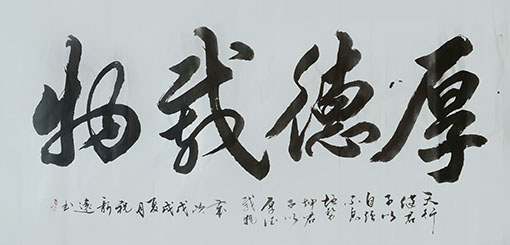 厚德载物
天行
健君
子以
自强
不息
地势
坤君
子以
厚德
载物
戊戌夏月祝新远书